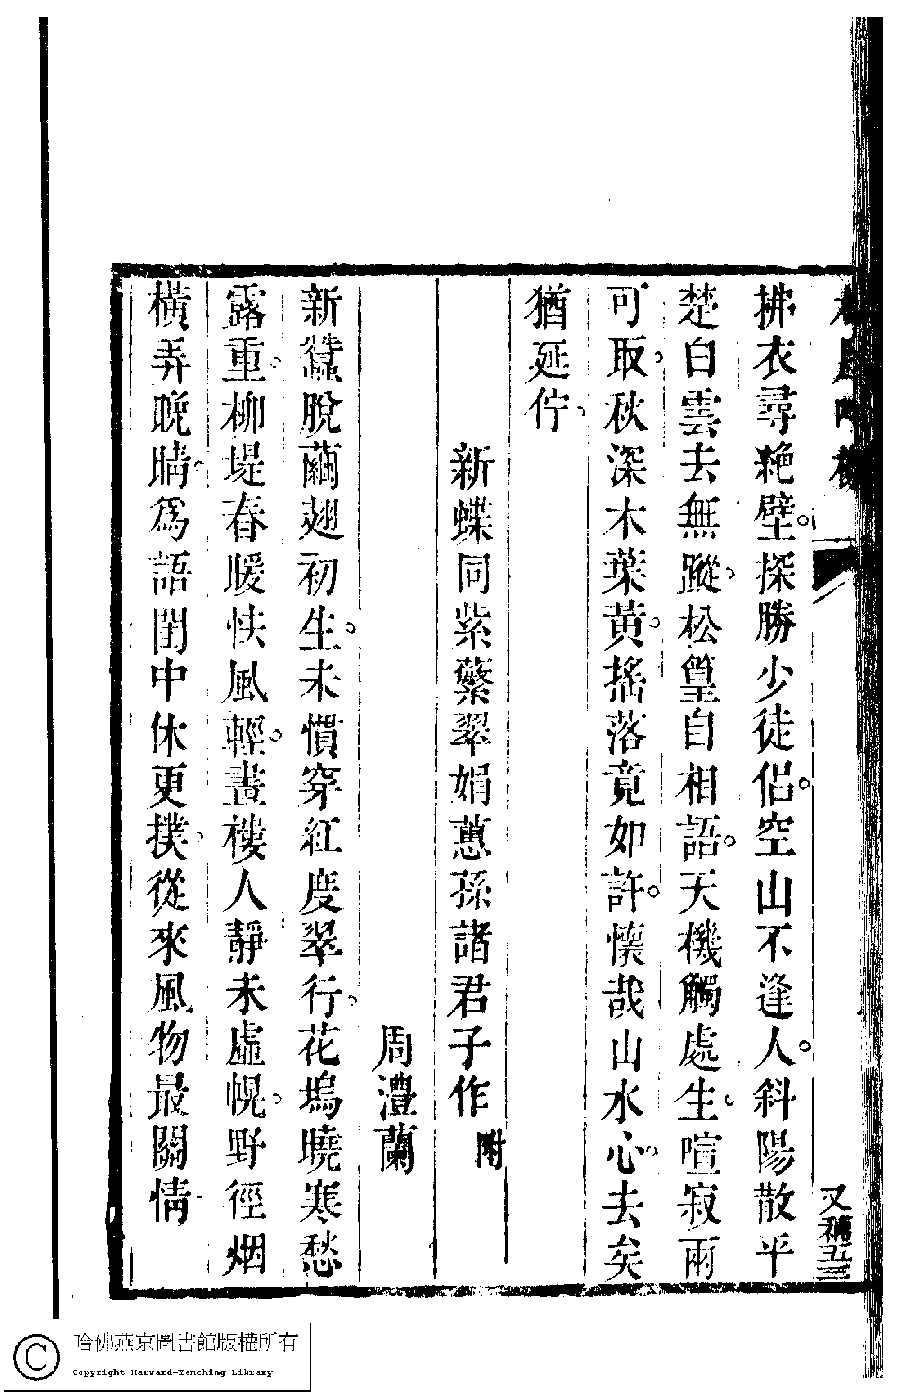 拂衣尋絶壁探勝少徒侶空山不逢人斜陽散平
楚白雲去無蹤松篁自相語天機觸處生喧寂兩
可取秋深木葉黃搖落竟如許懷哉山水心去矣
猶延佇
新蝶同紫蘩翠娟蕙孫諸君子作 附
周澧蘭
新蠶脫繭翅初生未慣穿紅度翠行花塢曉寒愁
露重柳堤春暖怯風輕晝樓人靜未虛幌野徑烟
橫弄晚晴爲語閨中休更撲從來風物最關情
又補五三
哈佛燕京圖書館版權所有
Copyright Harvard-Yenching Library